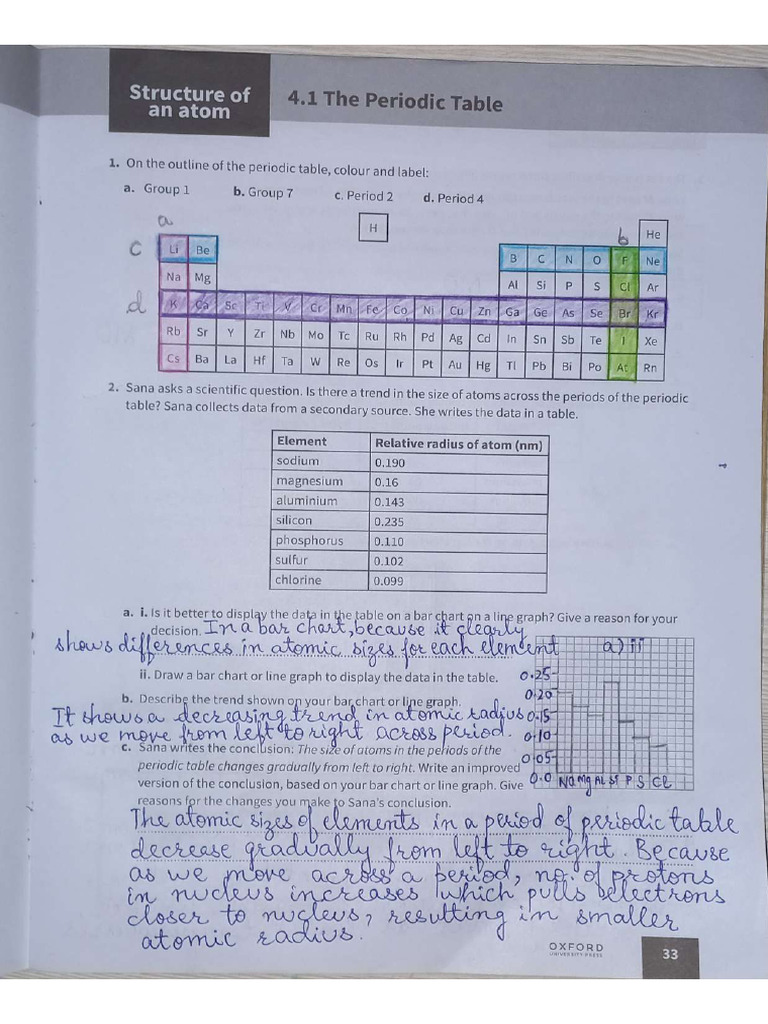 Structure of
an atom
4.1 The Periodic Table
1. On the outline of the periodic table, colour and label:
a. Group 1 b. Group 7 c. Period 2 d. Period 4
a H b He
c Li Be B C N O F Ne
Na Mg Al Si P S Cl Ar
d K Ca Sc Ti V Cr Mn Fe Co Ni Cu Zn Ga Ge As Se Br Kr
Rb Sr Y Zr Nb Mo Tc Ru Rh Pd Ag Cd In Sn Sb Te I Xe
Cs Ba La Hf Ta W Re Os Ir Pt Au Hg Tl Pb Bi Po At Rn
2. Sana asks a scientific question. Is there a trend in the size of atoms across the periods of the periodic
table? Sana collects data from a secondary source. She writes the data in a table.
Element Relative radius of atom (nm)
sodium 0.190
magnesium 0.16
aluminium 0.143
silicon 0.235
phosphorus 0.110
sulfur 0.102
chlorine 0.099
a. i. Is it better to display the data in the table on a bar chart on a line graph? Give a reason for your
decision. In a bar chart, because it clearly
shows differences in atomic sizes for each element
a) ii
ii. Draw a bar chart or line graph to display the data in the table.
0.25
0.20
0.15
0.10
0.05
0.0 Na Mg Al Si P S Cl
b. Describe the trend shown on your bar chart or line graph.
It shows a decreasing trend in atomic radius
as we move from left to right across period.
c. Sana writes the conclusion: The size of atoms in the periods of the
periodic table changes gradually from left to right. Write an improved
version of the conclusion, based on your bar chart or line graph. Give
reasons for the changes you make to Sana's conclusion.
The atomic sizes of elements in a period of periodic table
decrease gradually from left to right. Because
as we move across a period, no. of protons
in nucleus increases which pulls electrons
closer to nucleus, resulting in smaller
atomic radius.
OXFORD
UNIVERSITY PRESS
33